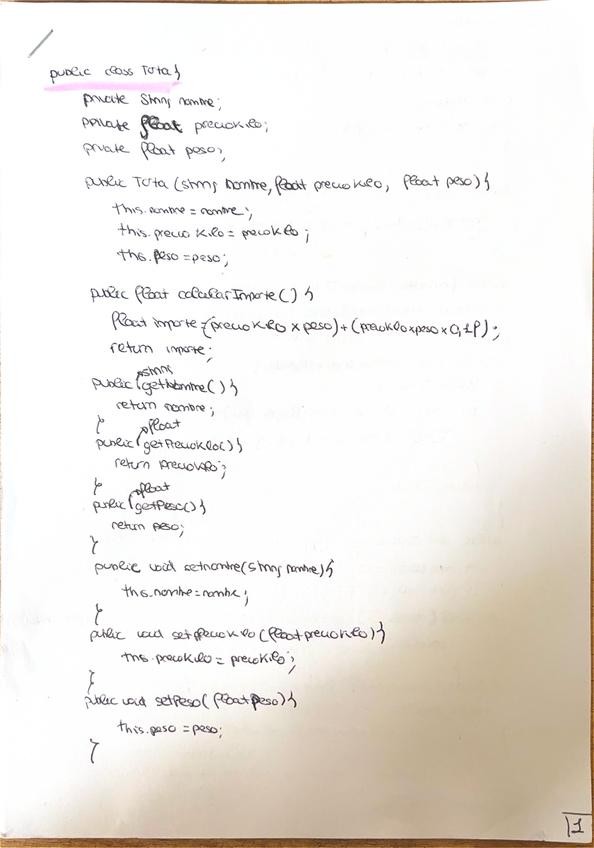 public class Tarta{
private String nombre;
private float precioKilo;
private float peso;
public Tarta (String nombre, float precioKilo, float peso){
this.nombre = nombre;
this.precioKilo = precioKilo;
this.peso = peso;
public float calcularImporte(){
float importe = (precioKilo x peso) + (precioKilo x peso x 0,1f);
return importe;
String
public getNombre(){
return nombre;
}
float
public getPrecioKilo(){
return precioKilo;
}
float
public getPeso(){
return peso;
}
public void setnombre(String nombre){
this.nombre = nombre;
}
public void setprecioKilo(float precioKilo){
this.precioKilo = precioKilo;
}
public void setPeso(float peso){
this.peso = peso;
}
1